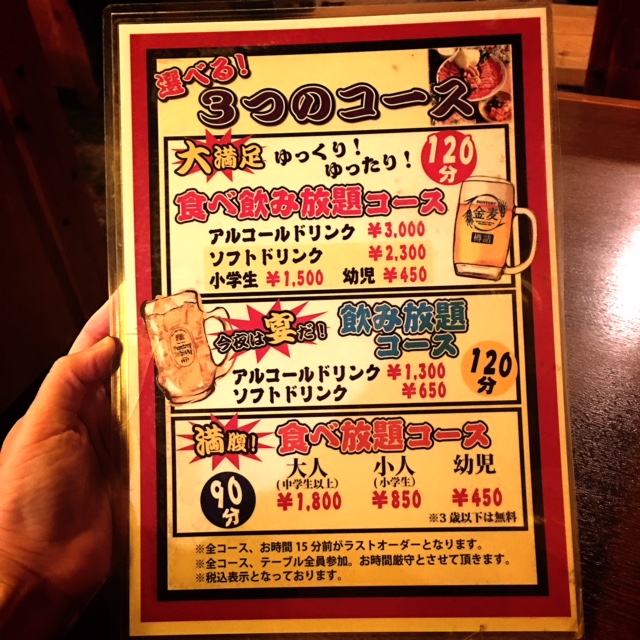 選べる!
3つのコース
大満足 ゆっくり! ゆったり! 120分
食べ飲み放題コース
アルコールドリンク ¥3,000
ソフトドリンク ¥2,300
小学生 ¥1,500 幼児 ¥450
金麦
樽詰
今夜は宴だ! 飲み放題
コース
120分
アルコールドリンク ¥1,300
ソフトドリンク ¥650
満腹! 食べ放題コース
90分
大人 小人 幼児
(中学生以上) (小学生)
¥1,800 ¥850 ¥450
※3歳以下は無料
※全コース、お時間15分前がラストオーダーとなります。
※全コース、テーブル全員参加。お時間厳守とさせて頂きます。
※税込表示となっております。